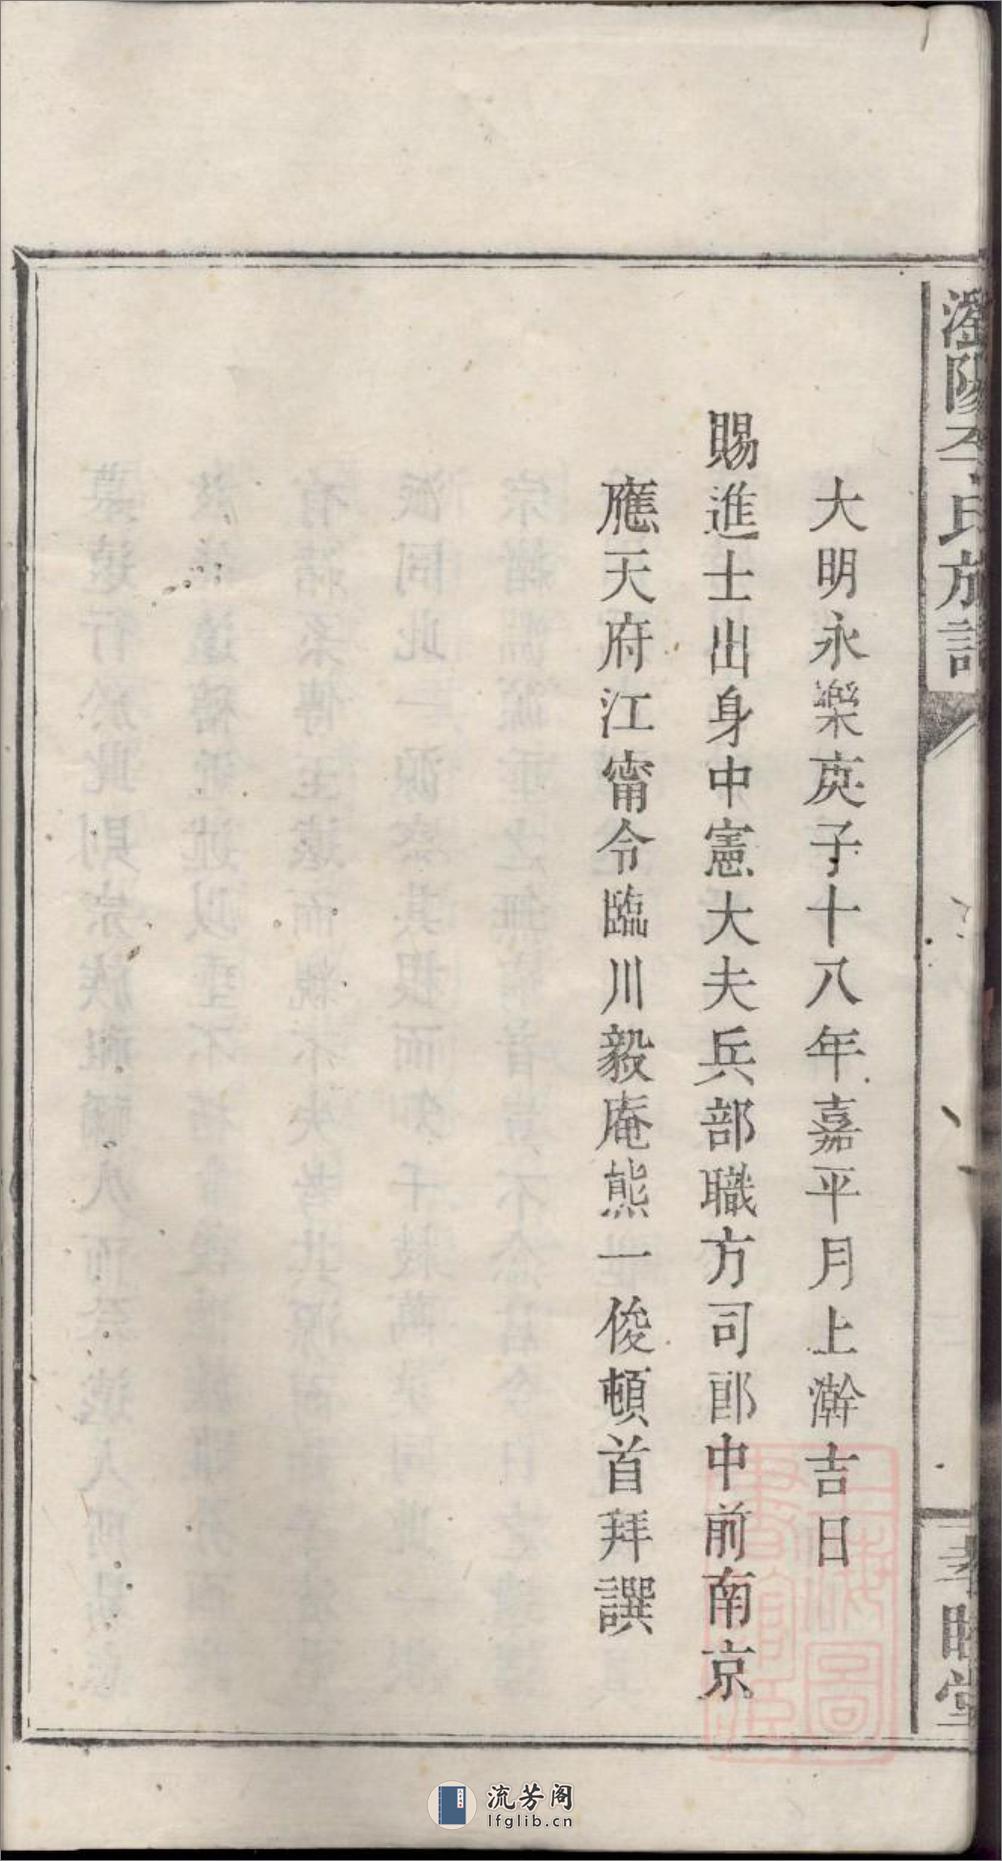 大明永樂庚子十八年嘉平月上澣吉日
賜進士出身中憲大夫兵部職方司郎中前南京
應天府江甯令臨川毅庵熊一俊頓首拜譔
陽李氏族譜
睦堂
上海圖書館藏
流芳阁
lfglib.cn